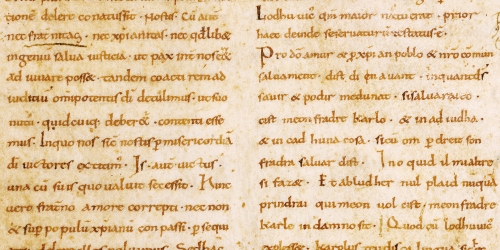 tione delere conatus sit. Nostis. Cū aut̄
nec frat nitas. nec xp̄ianitas. nec qdlibet
ingeniū salva iusticia. ut pax int nos eēt
adiuvare posset. tandem coacti rem ad
iuditiū omnipotentis dī detulimus. ut suo
nutu. quid cuiq; deberet. contenti esse
mus. In quo nos sic nostis p misericordiā
dī victores extitim. Is aut̄ victus
una cū suis quo valuit secessit. Hinc
vero fraterno amore correpti. nec non
& sup populū xp̄ianū conpassi. psequi
Lodhuvic qm̄ maior natu erat. prior
haec deinde se servaturū testatus ē.
Pro dō amur & p xp̄ian poblo & nr̄o comun
salvament. dist di en avant. inquantds
savir & podir medunat. sisalvaraieo.
cist meon fradre karlo. & in ad iudha.
& in cad huna cosa. sicū om p dreit son
fradra salvar dist. Ino quid il mialtre
si fazet. Et abludher nul plaid nūquā
prindrai qui meon vol cist. meonfradre
karle in damno sit. Quod cū lodhuvic
explesset. karolus